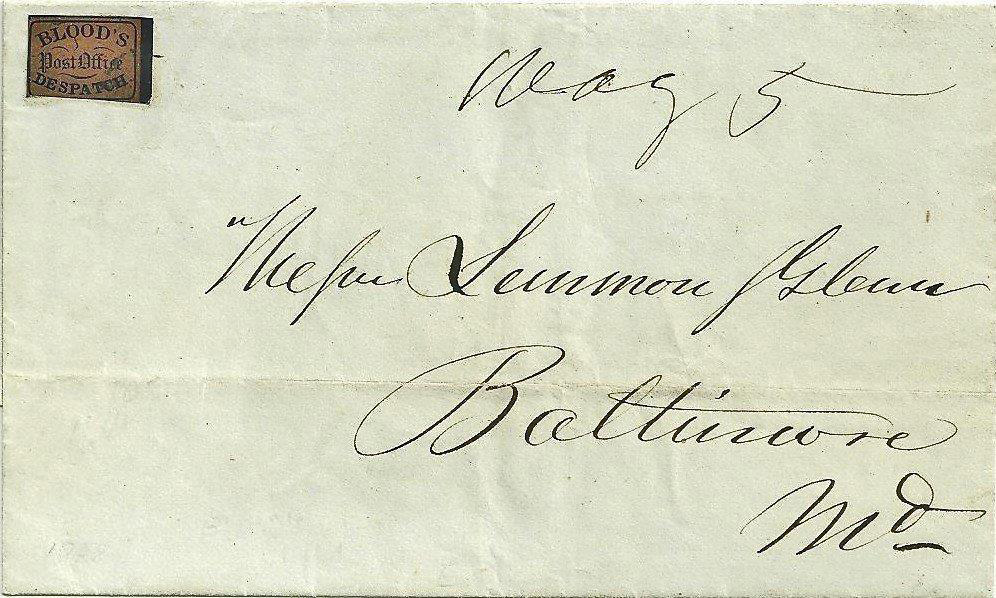 BLOOD'S
Post Office
DESPATCH.
Way 5
Messrs Lemmon & Glenn
Baltimore
Md